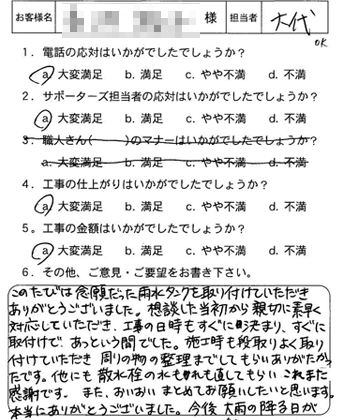 お客様名 様 担当者 大代
OK
1．電話の応対はいかがでしたでしょうか？
a. 大変満足 b. 満足 c. やや不満 d. 不満
2．サポーターズ担当者の応対はいかがでしたでしょうか？
a. 大変満足 b. 満足 c. やや不満 d. 不満
3．職人さん( )のマナーはいかがでしたでしょうか？
a. 大変満足 b. 満足 c. やや不満 d. 不満
4．工事の仕上がりはいかがでしたでしょうか？
a. 大変満足 b. 満足 c. やや不満 d. 不満
5．工事の金額はいかがでしたでしょうか？
a. 大変満足 b. 満足 c. やや不満 d. 不満
6．その他、ご意見・ご要望をお書き下さい。
このたびは念願だった雨水タンクを取り付けていただき
ありがとうございました。相談した当初から親切に素早く
対応していただき、工事の日時もすぐに決まり、すぐに
取付けで、あっという間でした。施工時も段取りよく取り
付けていただき 周りの物の整理までしてもらいありがたかっ
たです。他にも散水栓の水もれも直してもらい これまた
感謝です。また、おいおい まとめてお願いしたいと思います。
本当にありがとうございました。今後 大雨の降る日が